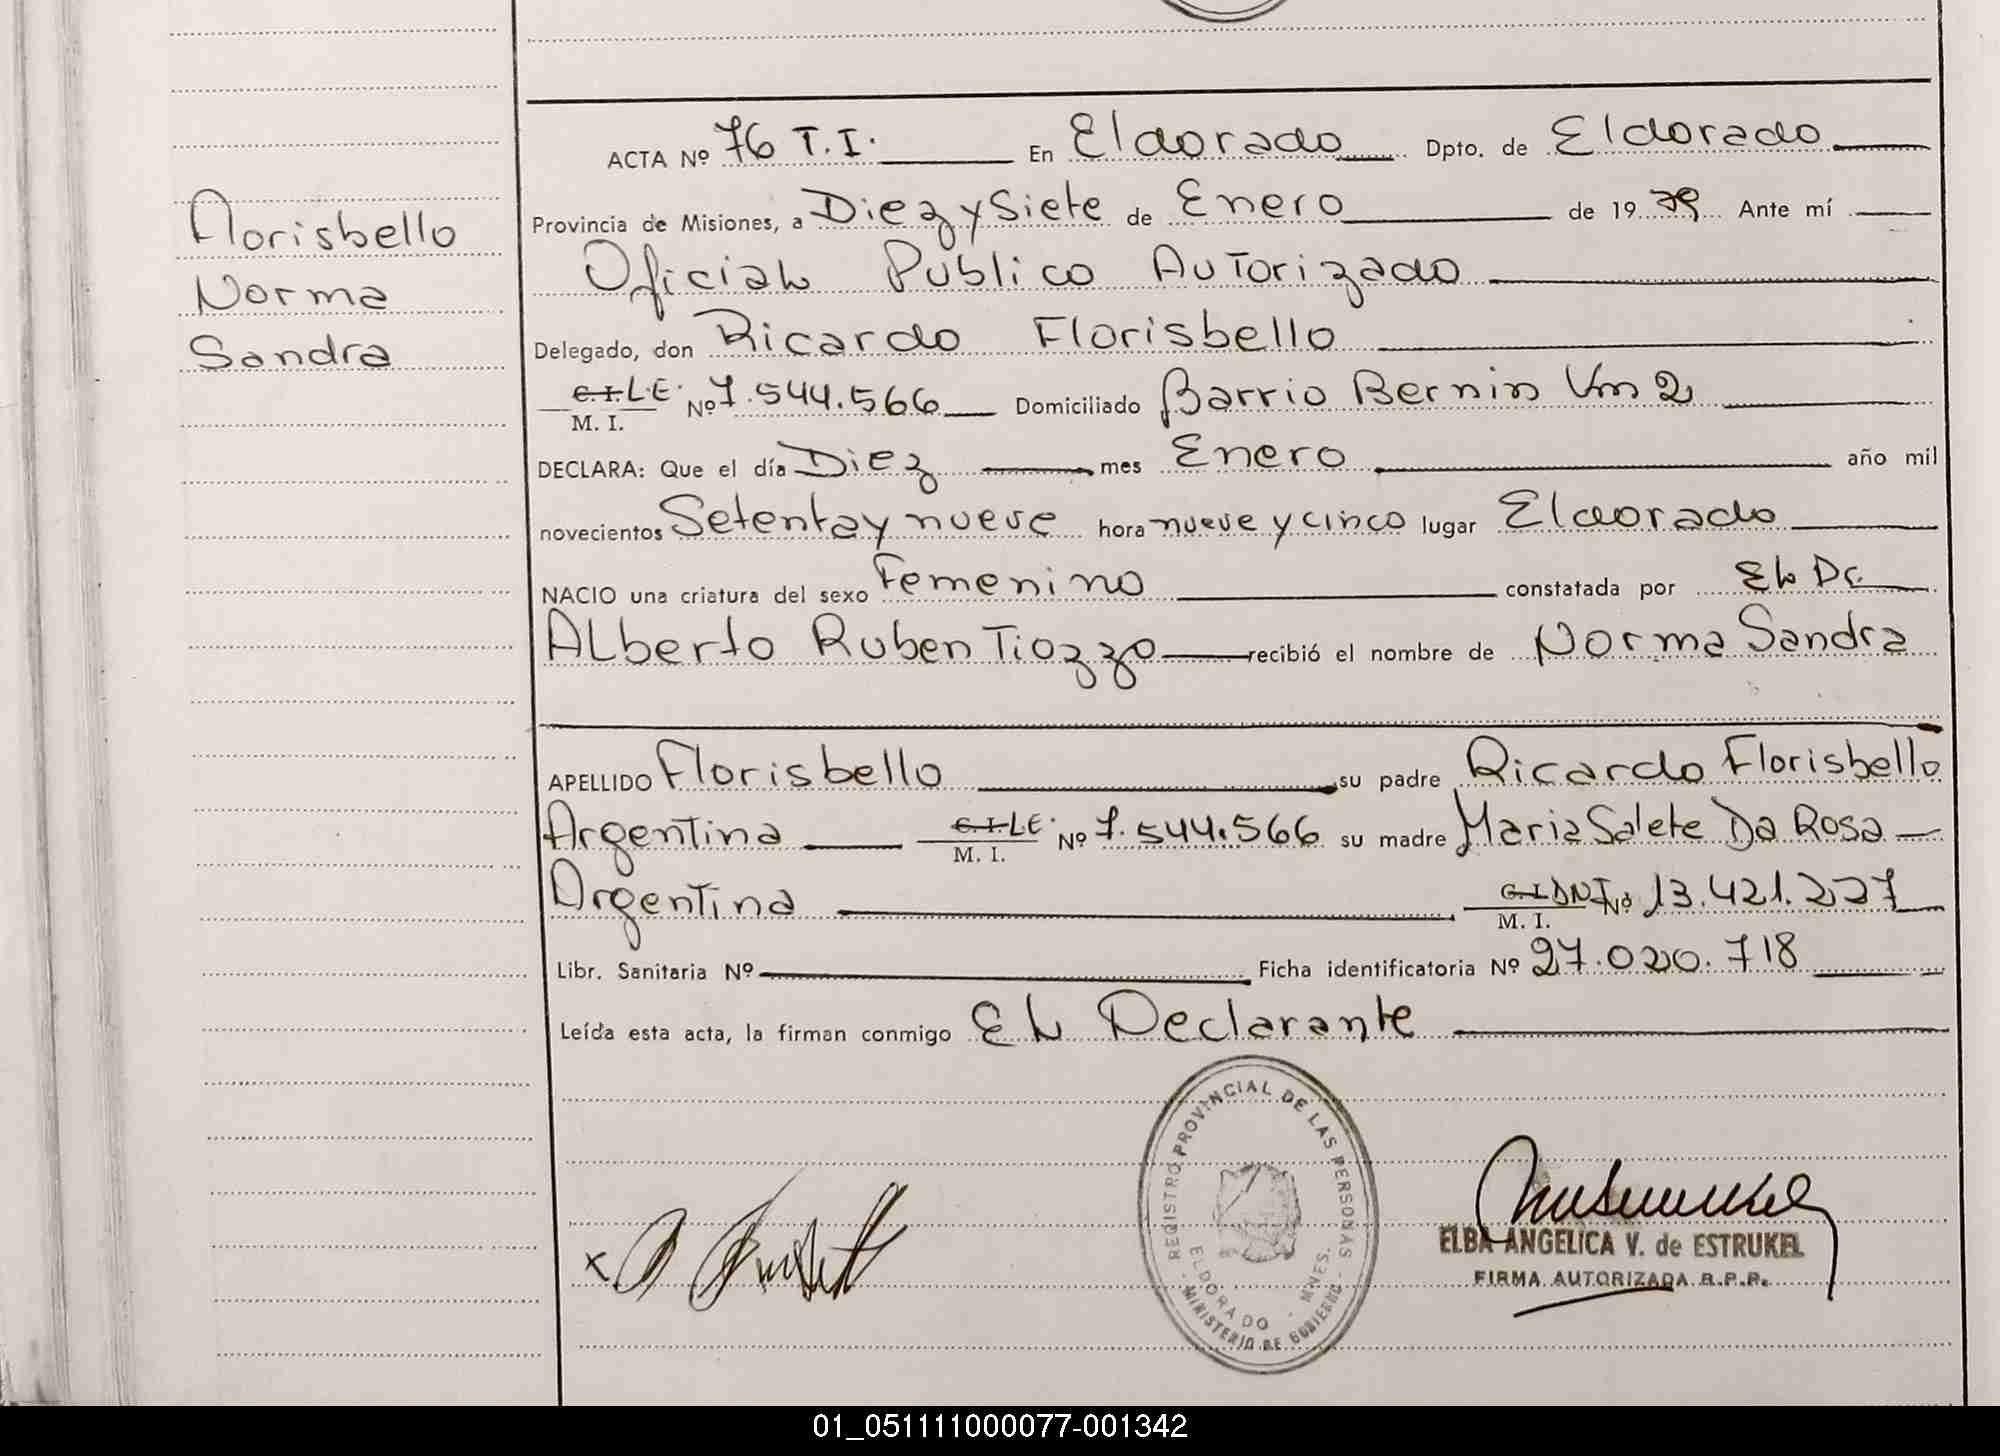 ACTA Nº 76 T.I. En Eldorado Dpto. de Eldorado
Provincia de Misiones, a Diez y Siete de Enero de 1979 Ante mí
Oficial Publico Autorizado
Delegado, don Ricardo Florisbello
C.I. L.E. M. I. Nº 7.544.566 Domiciliado Barrio Bernin Km 2
DECLARA: Que el día Diez mes Enero año mil
novecientos Setenta y nueve hora nueve y cinco lugar Eldorado
NACIO una criatura del sexo Femenino constatada por El Dr.
Alberto Ruben Tiozzo recibió el nombre de Norma Sandra
APELLIDO Florisbello su padre Ricardo Florisbello
Argentina C.I. LE. M. I. Nº 7.544.566 su madre Maria Salete Da Rosa
Argentina C.I. DNI M. I. Nº 13.421.227
Libr. Sanitaria Nº Ficha identificatoria Nº 27.020.718
Leída esta acta, la firman conmigo El Declarante
Florisbello
Norma
Sandra
x
REGISTRO PROVINCIAL DE LAS PERSONAS
ELDORADO - MNES.
- MINISTERIO DE GOBIERNO -
ELBA ANGELICA V. de ESTRUKEL
FIRMA AUTORIZADA R.P.P.
01_051111000077-001342